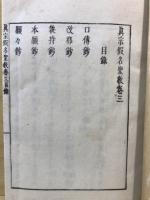 真宗假名聖教卷三
目錄
口傳鈔
改邪鈔
執持鈔
本願鈔
願々鈔
真宗假名聖教卷三目錄